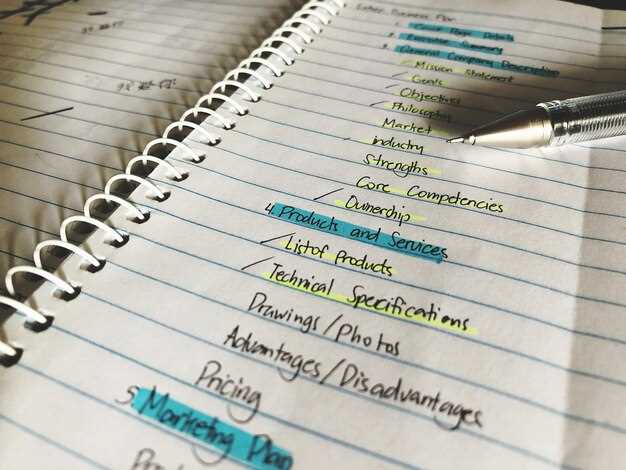 Business Plan
1. Cover Page Details
2. Executive Summary
3. General Company Description
/ Mission Statement
/ Goals
/ Objectives
/ Philosophy
Market
industry
Strengths
Core Competencies
/ Ownership
4. Products and Services
/ List of Products
/ Technical Specifications
Drawings/Photos
Advantages/Disadvantages
Pricing
5. Marketing Plan